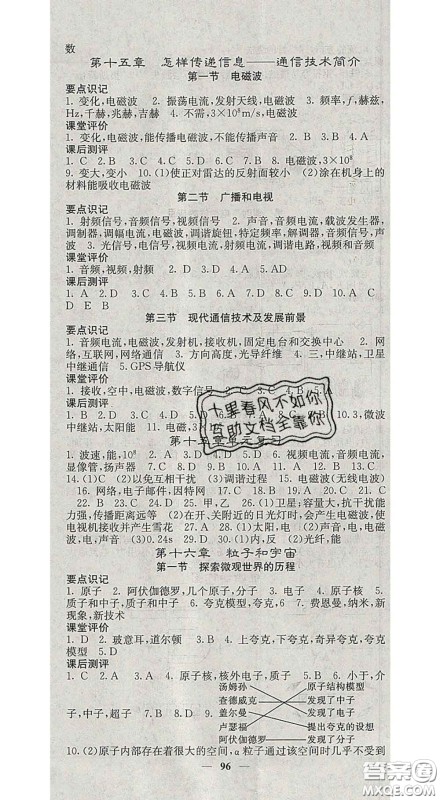 数
第十五章 怎样传递信息——通信技术简介
第一节 电磁波
要点识记
1. 变化,电磁波 2. 振荡电流,发射天线,电磁波 3. 频率,f,赫兹,
Hz,千赫,兆赫,吉赫 4. 不需,3×10⁸
课堂评价
1. 变化,电磁波,能传播电磁波,不能传播声音 2. B 3. D 4. B
课后测评
1. C 2. B 3. C 4. C 5. D 6. A 7. C 8. 电磁波,3×10⁸
9. 变大,变小 10. (1)使正对雷达的反射面较小 (2)涂在机身上的
材料能吸收电磁波
第二节 广播和电视
要点识记
1. 射频信号,音频信号,视频信号 2. 声音,音频电流,载波发生器,
调制器,调幅电流,电磁波,调谐旋钮,特定频率,解调器,音频信号,
声波 3. 光信号,电信号,视频电流,射频电流,调谐电路,视频和音频
课堂评价
1. 音频,视频,射频 2. D 3. C 4. A 5. AD
课后测评
1. A 2. D 3. C 4. B 5. D 6. A 7. B 8. ①⑤③②④ 9.
D E B C A
第三节 现代通信技术及发展前景
要点识记
1. 音频电流,电磁波,发射机,接收机,固定电台和交换中心 2. 网
络,互联网,网络通信 3. 方向高度,光导纤维 4. 三,中继站,卫星
中继通信 5. GPS导航仪
课堂评价
1. 接收,空中,电磁波,数字信号
课后测评
10. 3,微波
中继站,太阳能 11. 电磁波
七里春风不如你
互助文档全靠你
第十五章单元复习
1. 波速,能,10⁸
显像管,扬声器
14. (1)C (2)以免互相干扰 (3)调谐过程 15. 电磁波(无线电波)
16. 网络,电子邮件,因特网 17. B 18. C 19. B 20. C 21. D
22. BD 23. D 24. D 25. A 26. (1)卫星,容量大,抗干扰能
力强,传播距离远等 (2)在开、关附近的日光灯时,会产生电磁波,使
电视机接收并产生雪花 27. (1)太阳,电 (2)声音,电,声,电磁
波,声 (3)0.24s 28. (1)内,反 (2)光纤,能
第十六章 粒子和宇宙
第一节 探索微观世界的历程
要点识记
1. 原子 2. 阿伏伽德罗,几个原子 3. 电子 4. 原子核 5. 核,
质子和中子,质子和中子 6. 夸克模型 7. 费恩曼,纳米,新
现象,新技术
课堂评价
1. D 2. 玻意耳,道尔顿 3. B 4. 上夸克,下夸克,奇异夸克,夸克
模型 5. B
课后测评
1. C 2. A 3. A 4. 原子核,核外电子,质子 5. B 6. 小于,介
子,中子,超子 7. B 8. D 9.
汤姆孙 原子结构模型
查德威克 发现了中子
盖尔曼 发现了电子
卢瑟福 提出夸克的设想
阿伏伽德罗 发现了分子
10. (2)原子内部存在着很大的空间,α粒子通过该空间时几乎不受到
96
答案圈
MXQE.COM